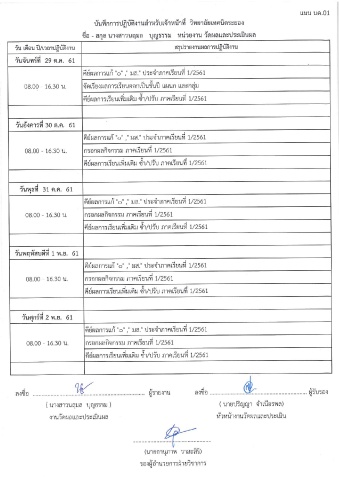 แบบ นค.01
บันทึกการปฏิบัติงานสำหรับเจ้าหน้าที่ วิทยาลัยเทคนิคระยอง
ชื่อ - สกุล นางสาวนฤมล บุญธรรม หน่วยงาน วัดผลและประเมินผล
วัน เดือน ปี/เวลาปฏิบัติงาน สรุปรายงานผลการปฏิบัติงาน
วันจันทร์ที่ 29 ต.ค. 61
คีย์ผลการแก้ "๐" ," มส." ประจำภาคเรียนที่ 1/2561
08.00 - 16.30 น. จัดเรียงผลการเรียนแยกเป็นชั้นปี แผนก และกลุ่ม
คีย์ผลการเรียนเพิ่มเติม ซ้ำ/ปรับ ภาคเรียนที่ 1/2561
วันอังคารที่ 30 ต.ค. 61
คีย์ผลการแก้ "๐" ," มส." ประจำภาคเรียนที่ 1/2561
08.00 - 16.30 น. กรอกผลกิจกรรม ภาคเรียนที่ 1/2561
คีย์ผลการเรียนเพิ่มเติม ซ้ำ/ปรับ ภาคเรียนที่ 1/2561
วันพุธที่ 31 ต.ค. 61
คีย์ผลการแก้ "๐" ," มส." ประจำภาคเรียนที่ 1/2561
08.00 - 16.30 น. กรอกผลกิจกรรม ภาคเรียนที่ 1/2561
คีย์ผลการเรียนเพิ่มเติม ซ้ำ/ปรับ ภาคเรียนที่ 1/2561
วันพฤหัสบดีที่ 1 พ.ย. 61
คีย์ผลการแก้ "๐" ," มส." ประจำภาคเรียนที่ 1/2561
08.00 - 16.30 น. กรอกผลกิจกรรม ภาคเรียนที่ 1/2561
คีย์ผลการเรียนเพิ่มเติม ซ้ำ/ปรับ ภาคเรียนที่ 1/2561
วันศุกร์ที่ 2 พ.ย. 61
คีย์ผลการแก้ "๐" ," มส." ประจำภาคเรียนที่ 1/2561
08.00 - 16.30 น. กรอกผลกิจกรรม ภาคเรียนที่ 1/2561
คีย์ผลการเรียนเพิ่มเติม ซ้ำ/ปรับ ภาคเรียนที่ 1/2561
ลงชื่อ ผู้รายงาน ลงชื่อ ผู้รับรอง
( นางสาวนฤมล บุญธรรม ) ( นายปริญญา จำเนียรพล)
งานวัดผลและประเมินผล หัวหน้างานวัดผลและประเมินผล
(นายอานุภาพ วาสะสิริ)
รองผู้อำนวยการฝ่ายวิชาการ